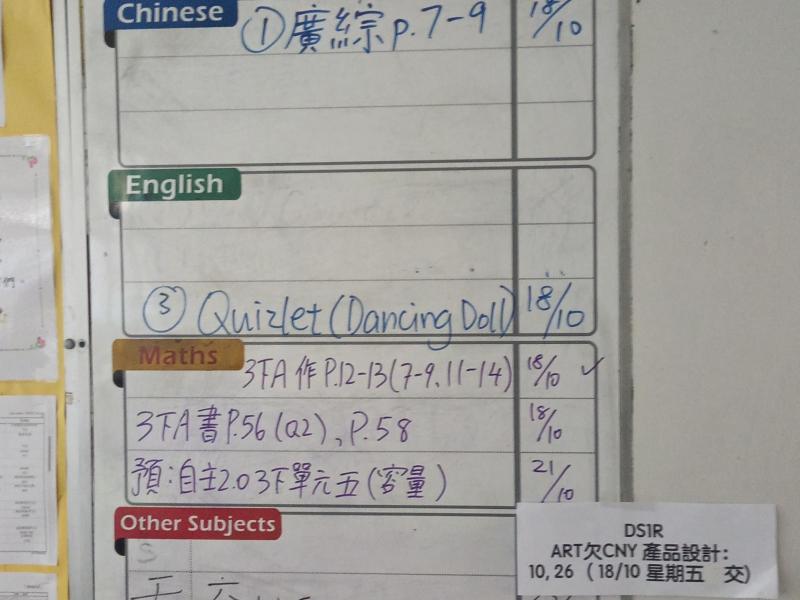 Chinese
①廣綜p.7-9 18/10
English
③ Quizlet (Dancing Doll) 18/10
Maths
3下A 作 P.12-13(7-9,11-14) 18/10 ✓
3下A 書 P.56 (Q2)、P.58 18/10
預:自主2.0 3下單元五(容量) 21/10
Other Subjects
S
DS1R
ART欠CNY 產品設計:
10, 26 (18/10 星期五 交)